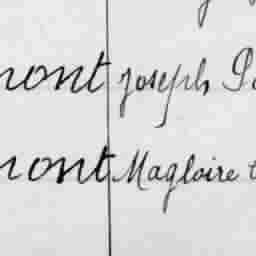 mont Joseph
mont Magloire